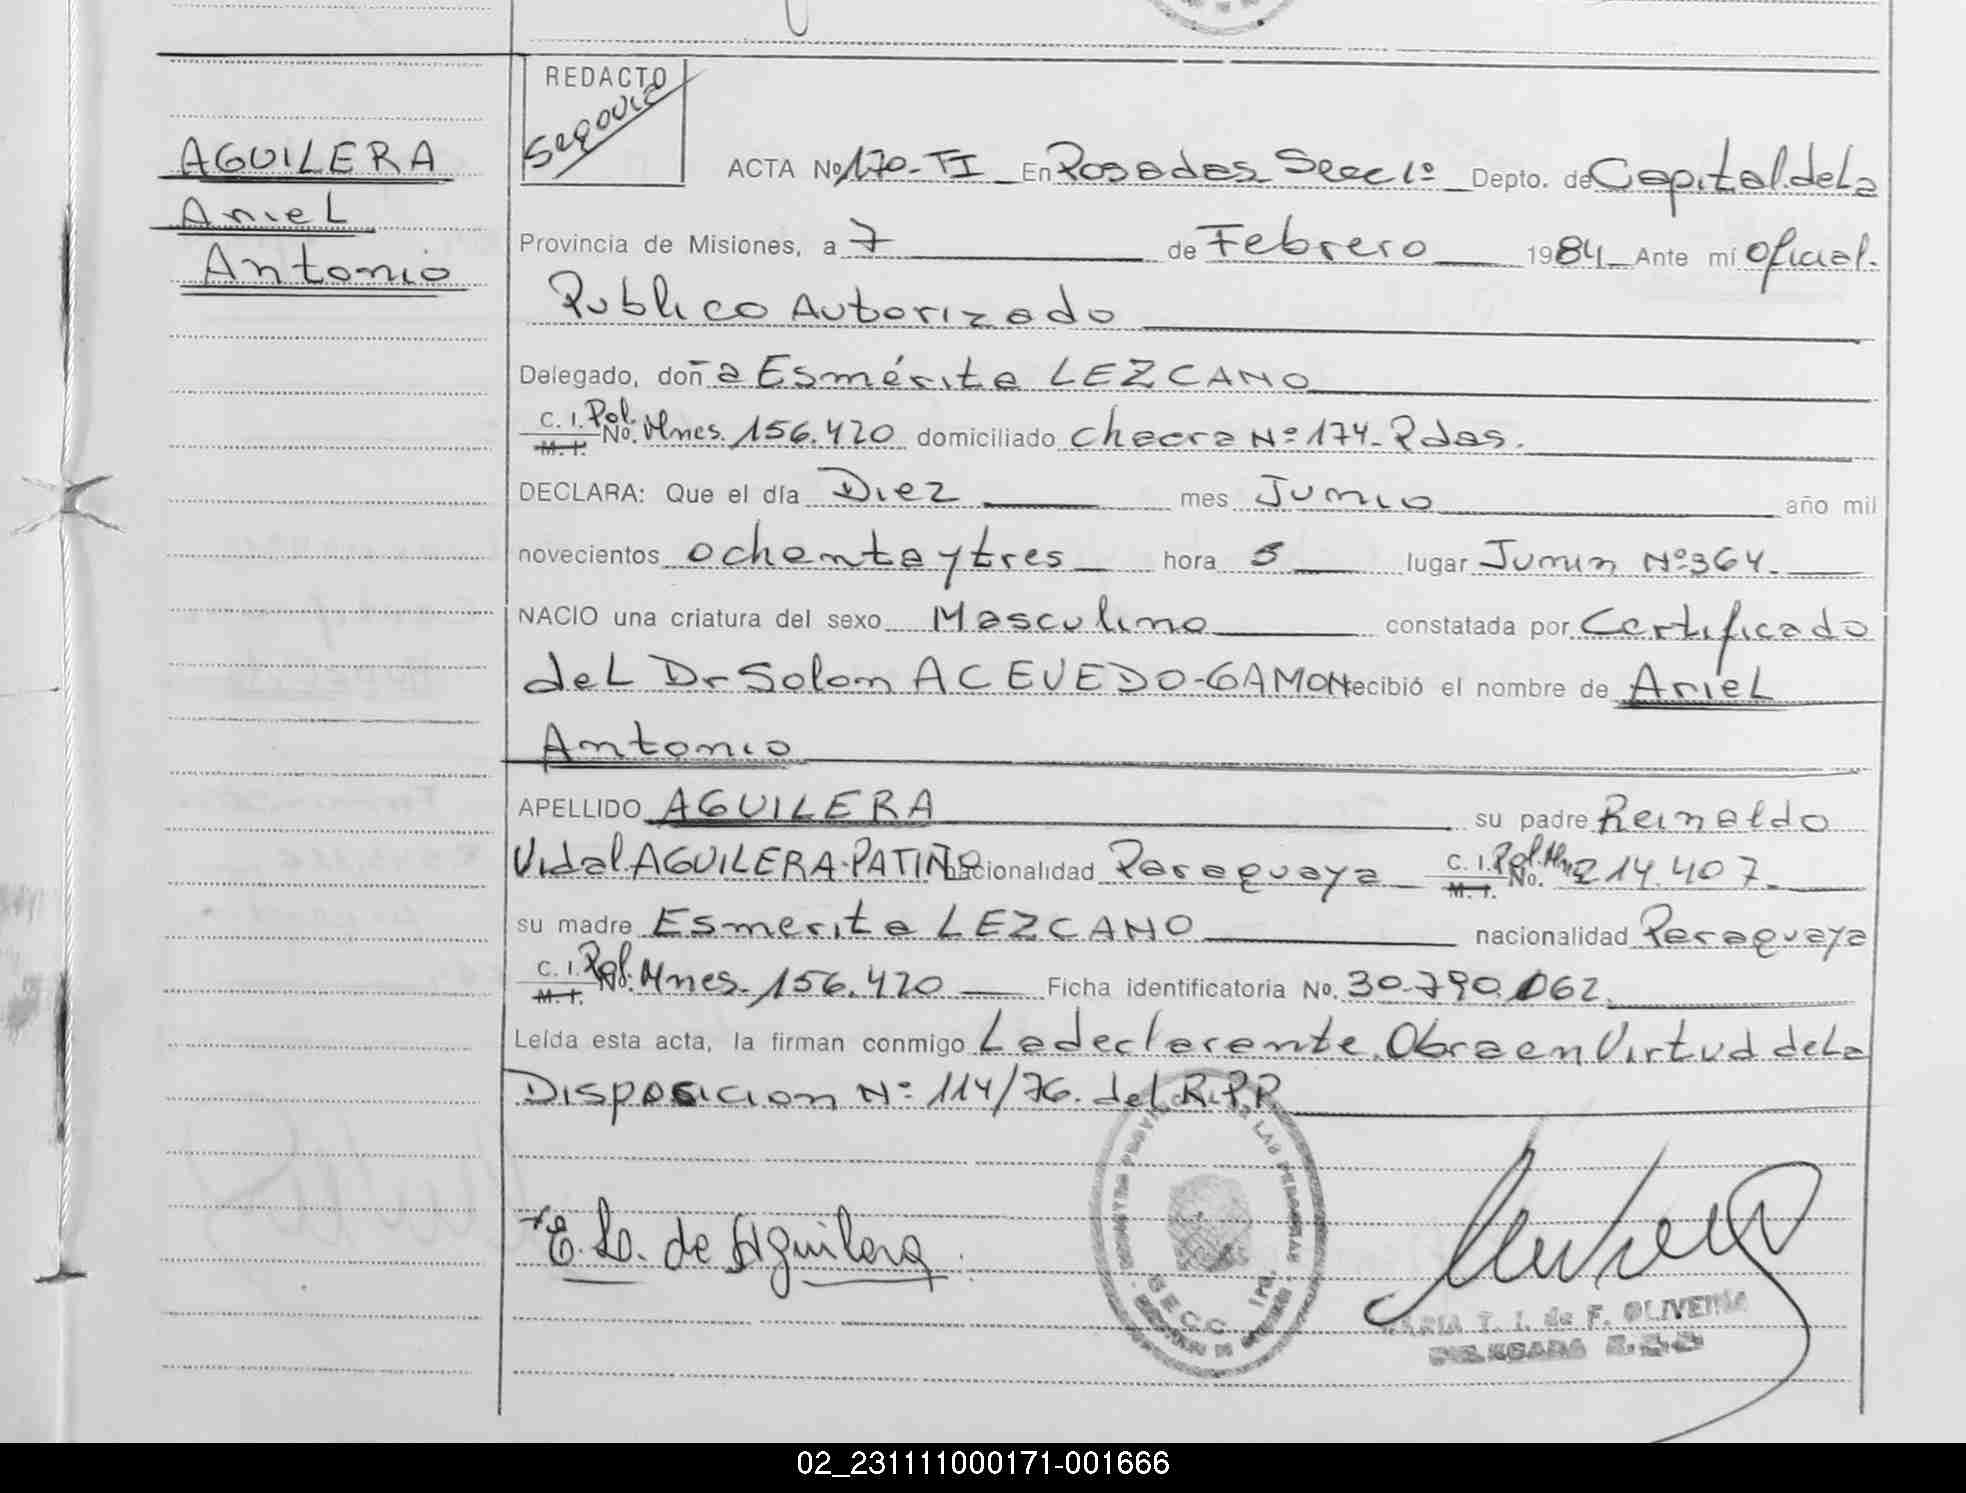 AGUILERA
Ariel
Antonio
REDACTO
Segovia
ACTA No 170-TI En Posadas Secc 1º Depto. de Capital de La
Provincia de Misiones, a 7 de Febrero 1984 Ante mí Oficial.
Publico Autorizado
Delegado, doñ a Esmérita LEZCANO
C. I. Pol.
M. I. No. Mnes. 156.420 domiciliado Chacra Nº 174- Pdas.
DECLARA: Que el día Diez mes Junio año mil
novecientos ochenta y tres hora 5 lugar Junin Nº 364.
NACIO una criatura del sexo Masculino constatada por Certificado
del Dr Solon ACEVEDO-GAMON recibió el nombre de Ariel
Antonio
APELLIDO AGUILERA su padre Reinaldo
Vidal AGUILERA-PATIÑO nacionalidad Paraguaya C. I. Pol. Mnes M. I. No. 214.407
su madre Esmerita LEZCANO nacionalidad Paraguaya
C. I. Pol.
M. I. No. Mnes. 156.420 Ficha identificatoria No. 30.790.062.
Leída esta acta, la firman conmigo La declarente. Obra en Virtud de La
Disposicion Nº 114/76. del R.P.P.
E. L. de Aguilera
MARIA T. I. de F. OLIVEIRA
DELEGADA
02_231111000171-001666